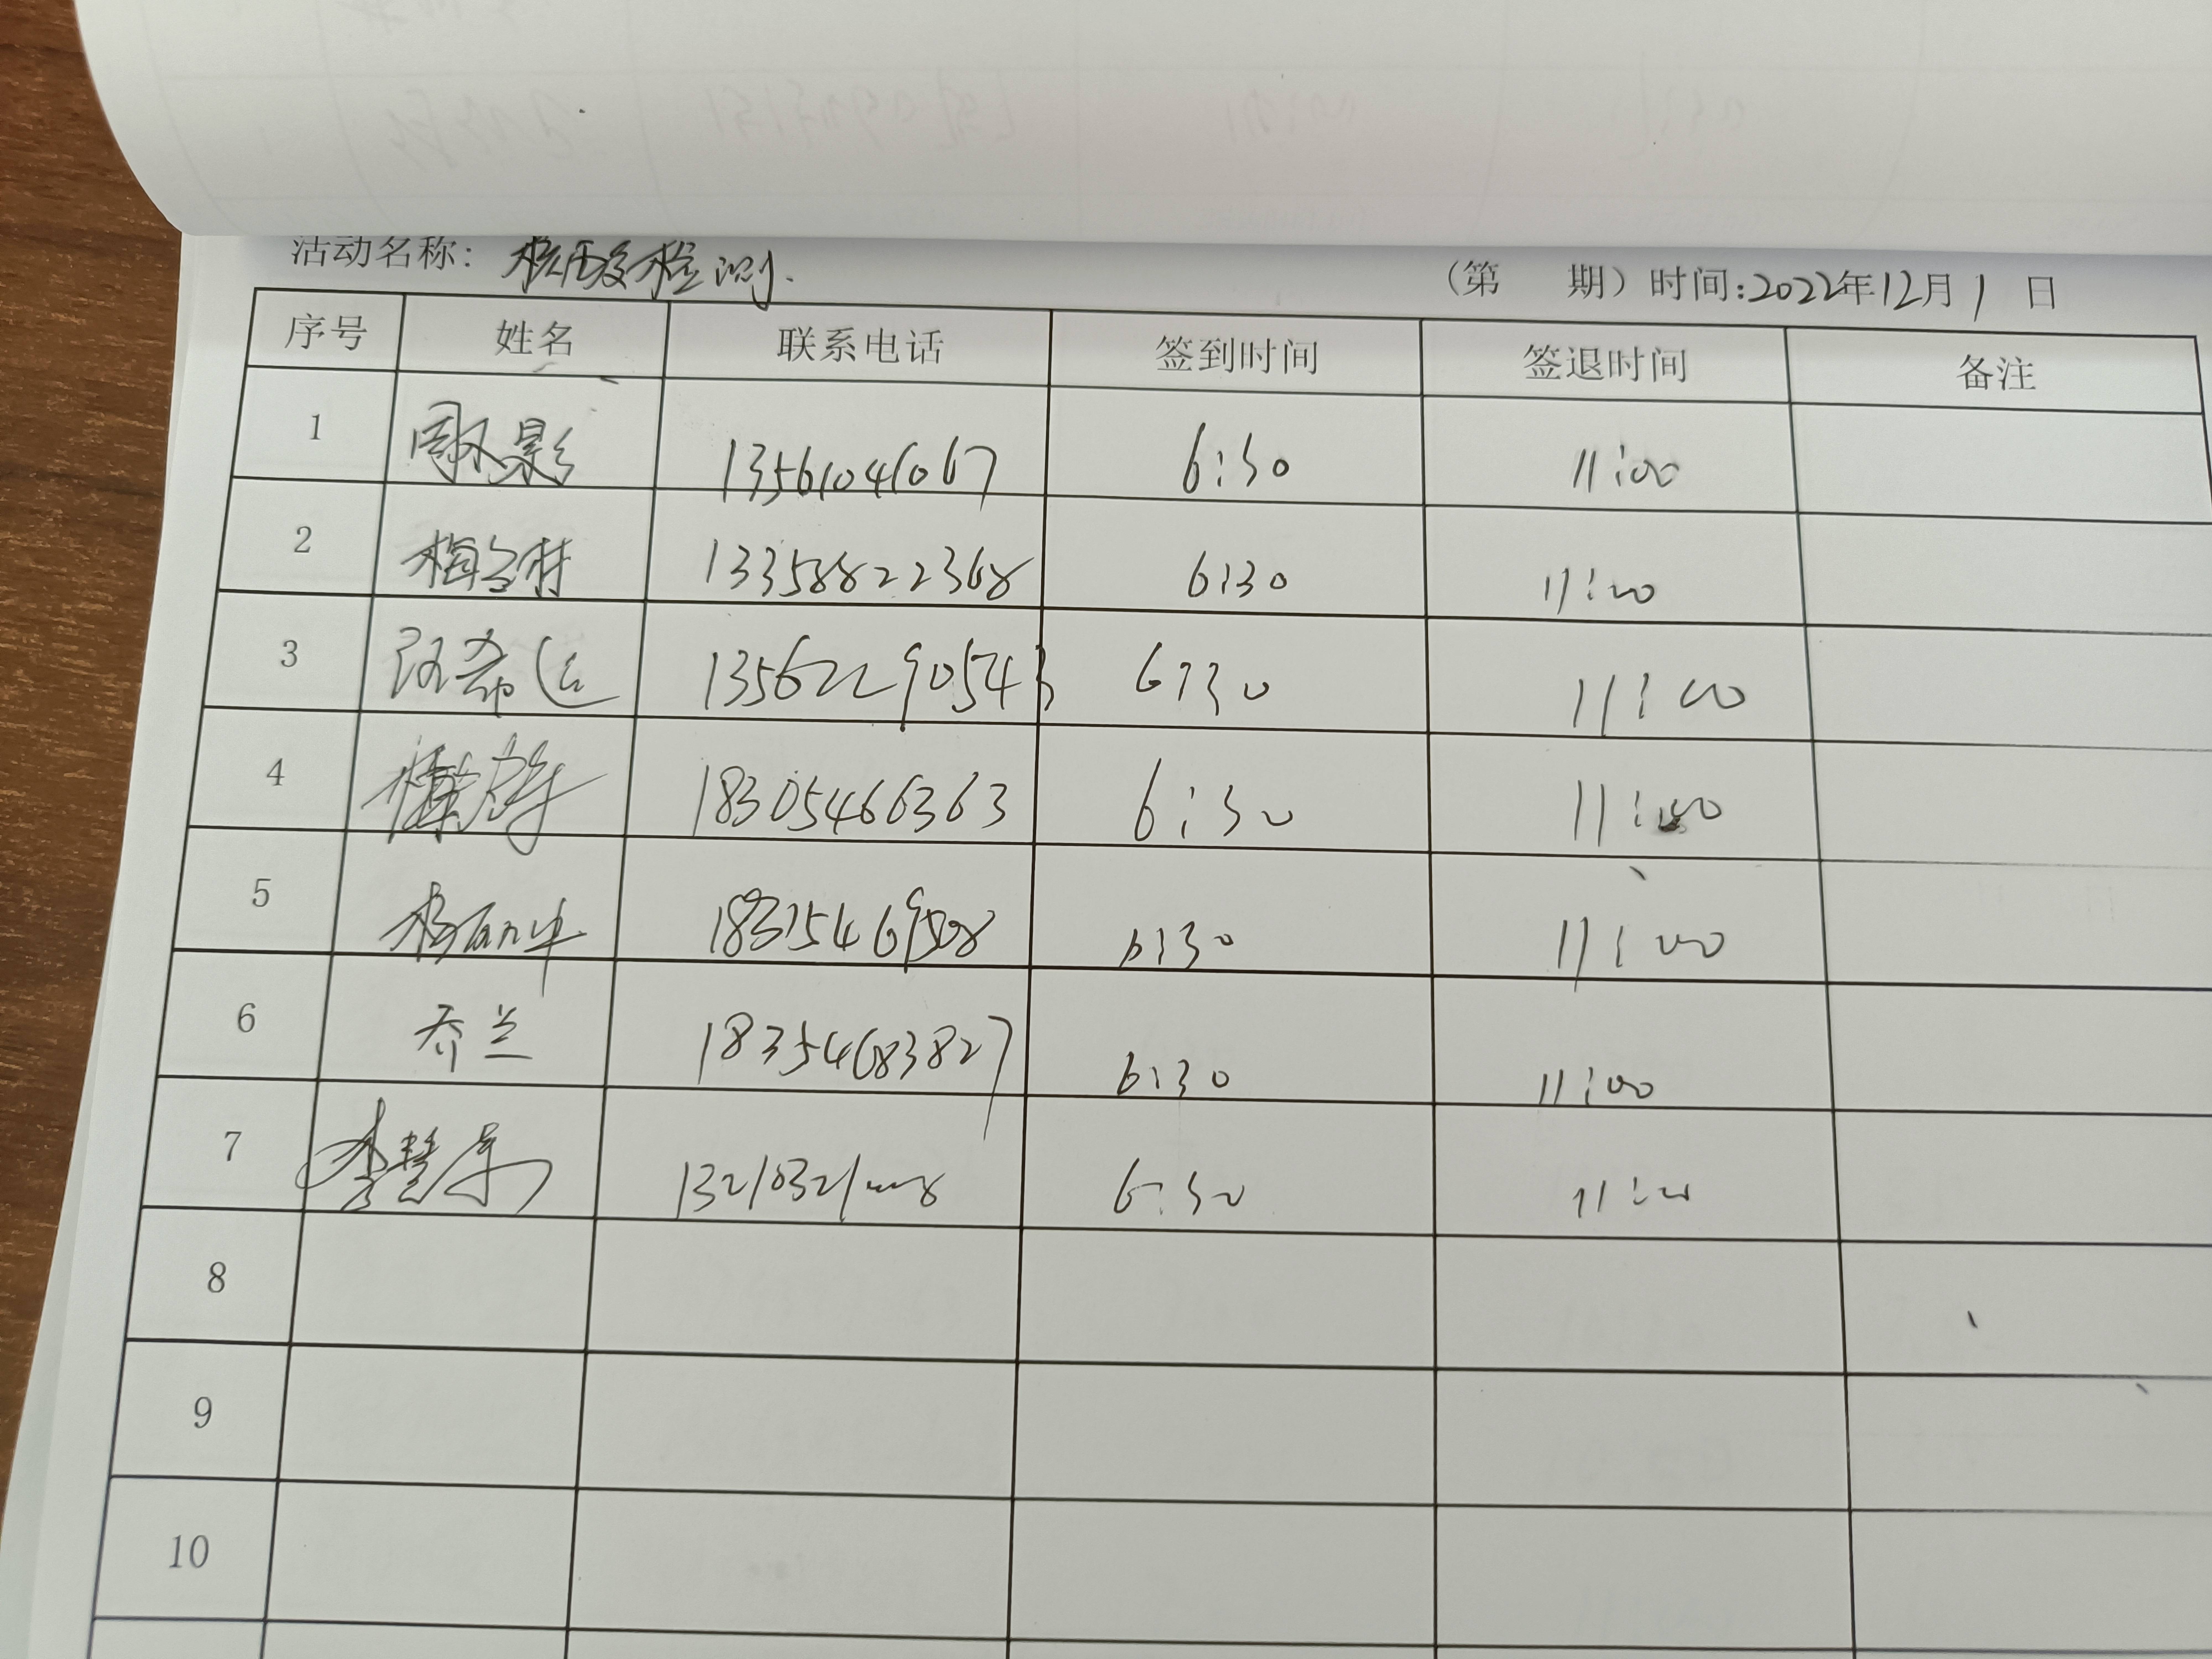 活动名称: 核酸检测.
(第 期) 时间:2022年12月1日
序号 姓名 联系电话 签到时间 签退时间 备注
1 13561041067 6:30 11:00
2 13358822368 6:30 11:00
3 13562290543 6:30 11:00
4 18305466363 6:30 11:00
5 6:30 11:00
6 乔兰 18354683827 6:30 11:00
7 6:30 11:00
8
9
10